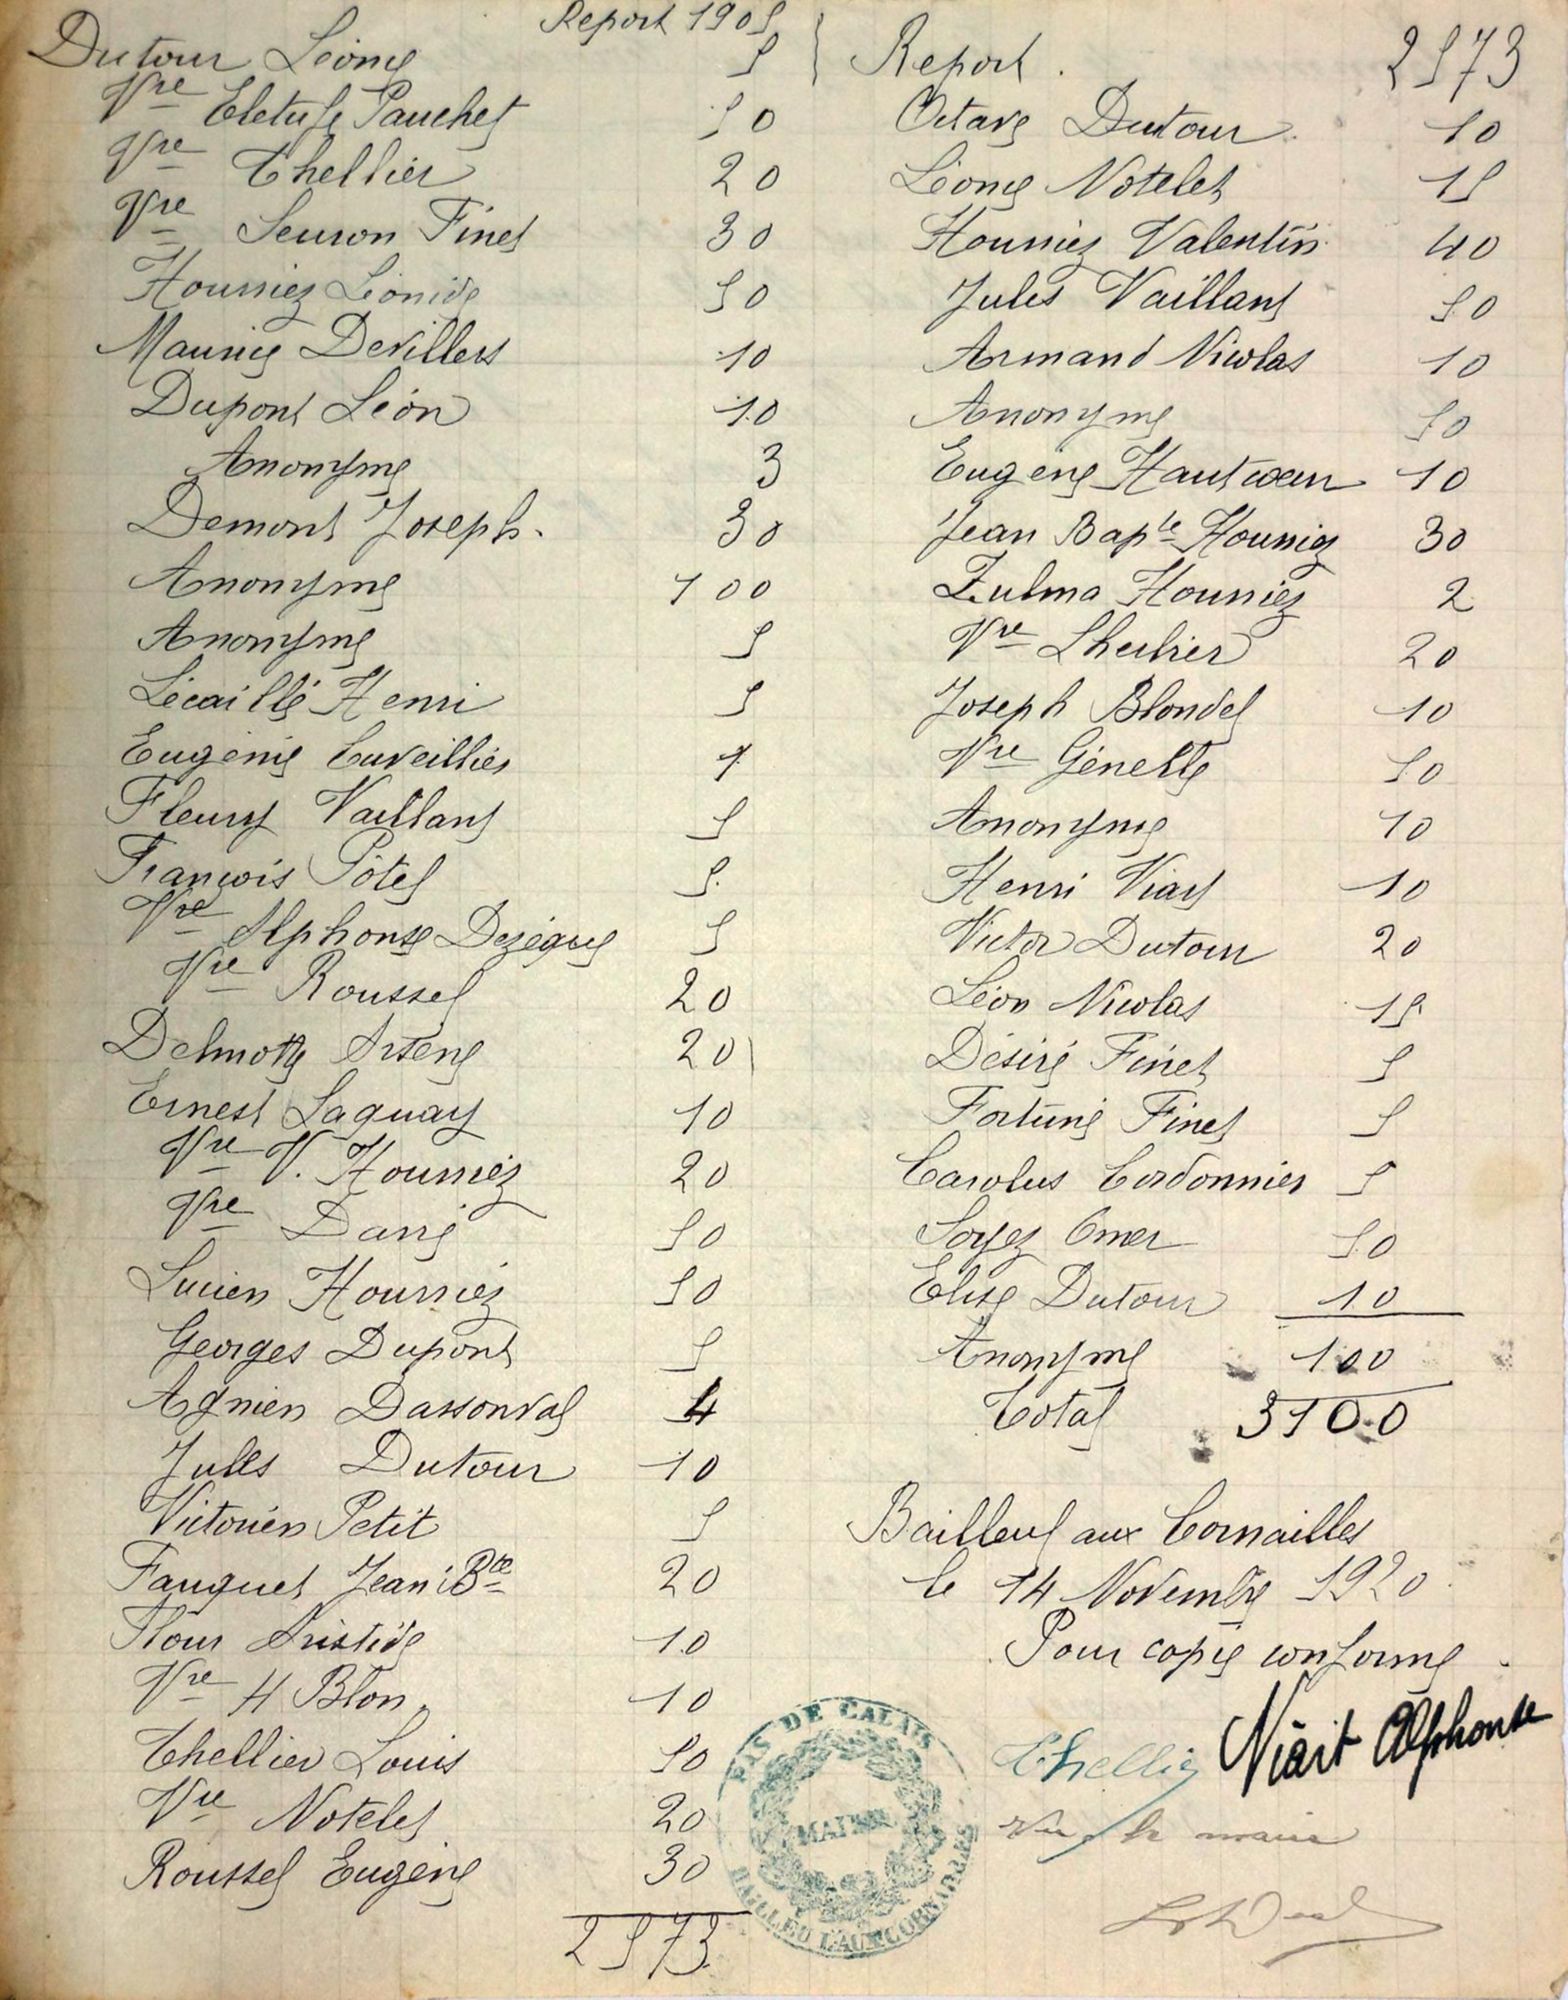 Report 1905
Dutour Léonie 5
Vve Pauchet 50
Vve Thellier 20
Vve Seuron Finet 30
Hourriez Léonide 50
Maurice Devillers 10
Dupont Léon 10
Anonyme 3
Demont Joseph 30
Anonyme 100
Anonyme 5
Lécaillé Henri 5
Eugénie Cuveillier 1
Fleury Vaillant 5
François Potel 5
Vve Alphonse Dezègue 5
Vve Roussel 20
Delmotte Arsène 20
Ernest Laguay 10
Vve V. Hourriez 20
Vve Darré 50
Lucien Hourriez 50
Georges Dupont 5
Agnien Dassonval 4
Jules Dutour 10
Victorien Petit 5
Fauquet Jean Bte 20
Flour Aristide 10
Vve H Blon 10
Thellier Louis 50
Vve Notelet 20
Roussel Eugène 30
2573
Report 2573
Octave Dutour 10
Léonie Notelet 15
Hourriez Valentin 40
Jules Vaillant 50
Armand Nicolas 10
Anonyme 50
Eugène Hautcoeur 10
Jean Bapte Hourriez 30
Zulma Hourriez 2
Vve Lheulier 20
Joseph Blondel 10
Vve Génelle 50
Anonyme 10
Henri Viart 10
Victor Dutour 20
Léon Nicolas 15
Désiré Finet 5
Fortuné Finet 5
Carolus Cordonnier 5
Soyez Omer 50
Elise Dutour 10
Anonyme 100
Total 3100
Bailleul aux Cornailles
le 14 Novembre 1920
Pour copie conforme
Thellier Viart Alphonse
Vu, le maire
PAS DE CALAIS
MAIRIE
BAILLEUL AUX CORNAILLES